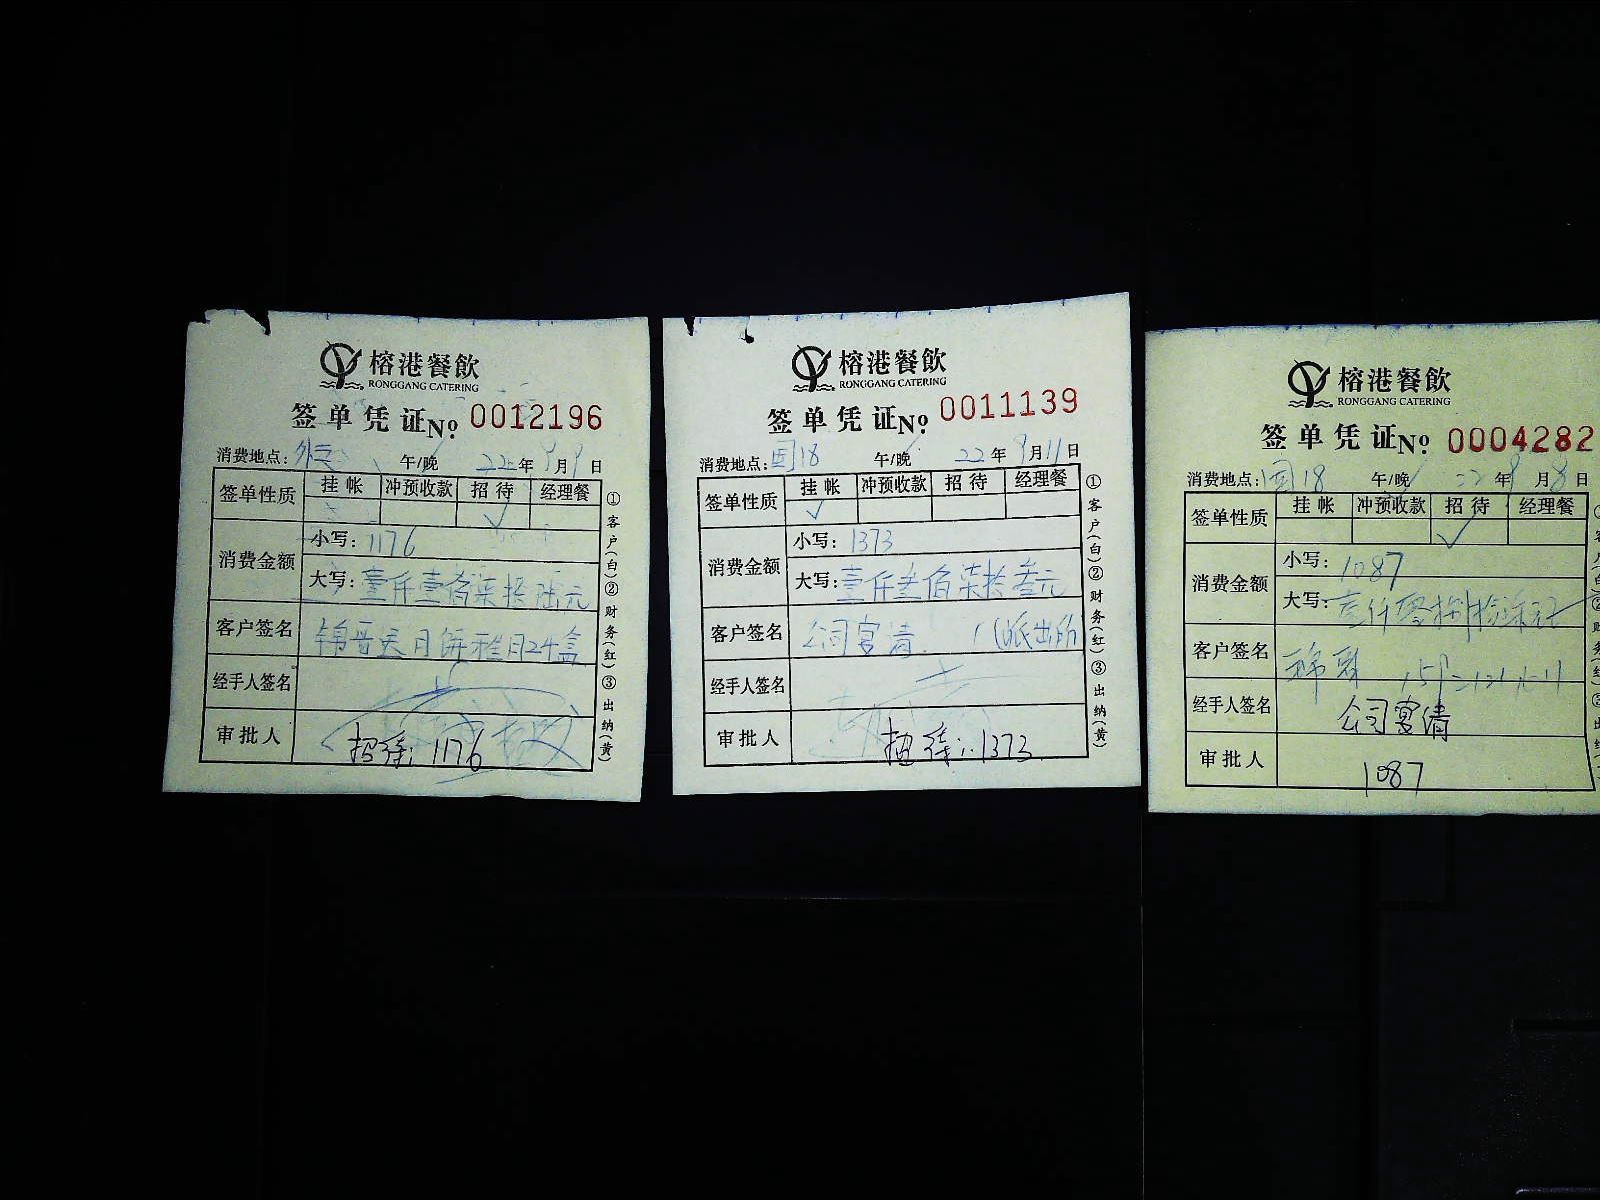 榕港餐飲
RONGGANG CATERING
签单凭证No. 0012196
消费地点: 午/晚 22年9月9日
签单性质 挂帐 冲预收款 招待 经理餐
✓
消费金额 小写: 1176
大写: 壹仟壹佰柒拾陆元
客户签名 月饼 24盒
经手人签名
审批人 招待: 1176
①客户(白)②财务(红)③出纳(黄)
榕港餐飲
RONGGANG CATERING
签单凭证No. 0011139
消费地点: 园18 午/晚 22年9月11日
签单性质 挂帐 冲预收款 招待 经理餐
✓
消费金额 小写: 1373
大写: 柒拾叁元
客户签名 公司宴请 派出所
经手人签名
审批人 招待: 1373
①客户(白)②财务(红)③出纳(黄)
榕港餐飲
RONGGANG CATERING
签单凭证No. 0004282
消费地点: 园18 午/晚 22年 月8日
签单性质 挂帐 冲预收款 招待 经理餐
✓
消费金额 小写: 1087
大写: 壹仟零 捌拾柒元
客户签名
经手人签名 公司宴请
审批人 1087